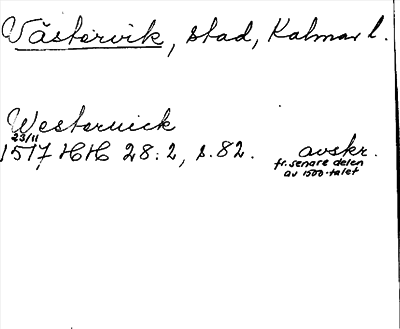 Västervik, stad, Kalmar l.
Westerwick
23/11
1517 HH 28:2, s. 82. avskr.
fr. senare delen
av 1500-talet